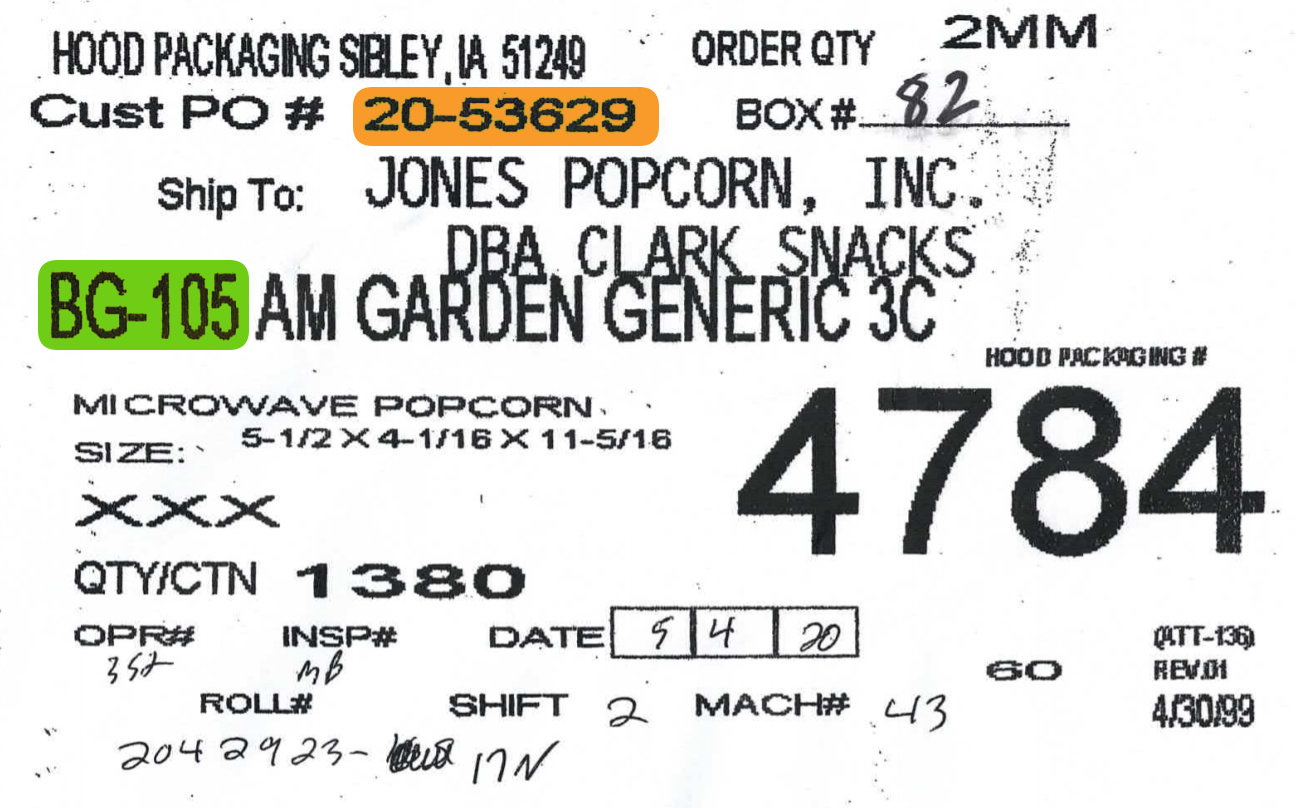 HOOD PACKAGING SIBLEY, IA 51249 ORDER QTY 2MM
Cust PO # 20-53629 BOX # 82
Ship To: JONES POPCORN, INC.
DBA CLARK SNACKS
BG-105 AM GARDEN GENERIC 3C
HOOD PACKAGING #
4784
MICROWAVE POPCORN
SIZE: 5-1/2 X 4-1/16 X 11-5/16
XXX
QTY/CTN 1380
OPR# INSP# DATE 5 4 20 (ATT-136)
352 MB 60 REV.01
ROLL# SHIFT 2 MACH# 43 4/30/99
2042923- 17N